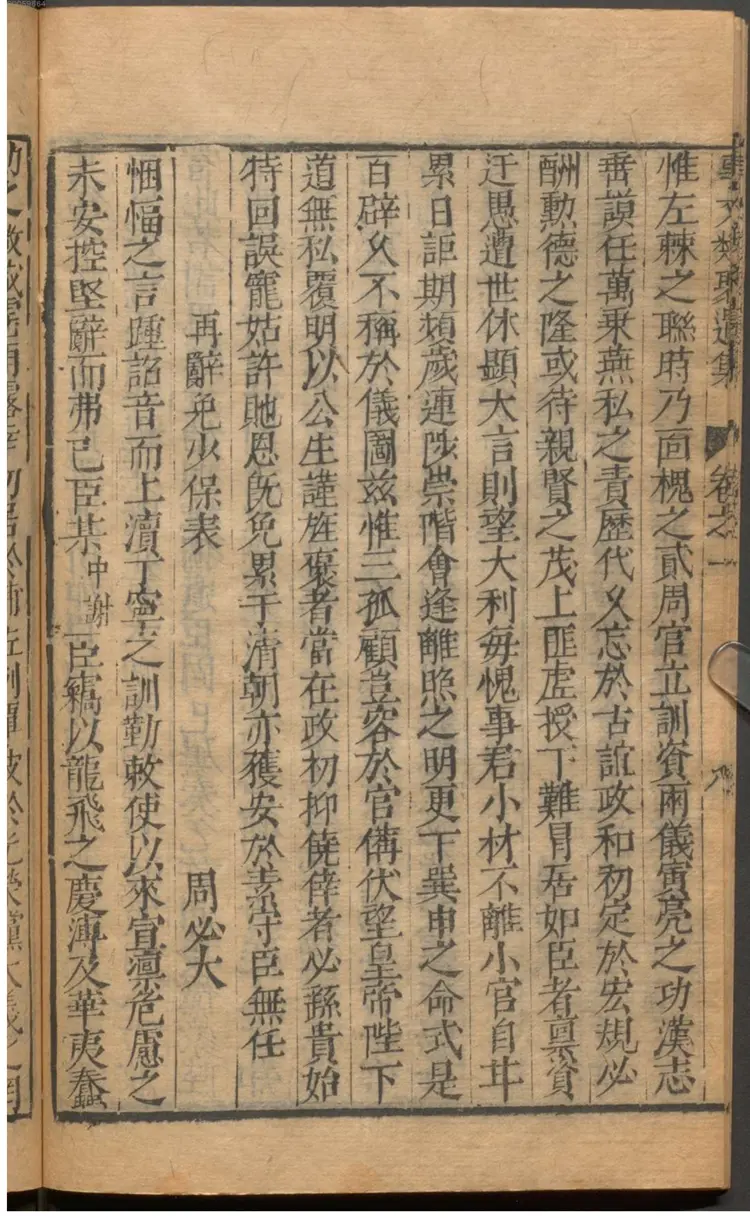 惟左棘之聯時乃面槐之貳周官立訓資兩儀寅亮之功漢志
垂謨任萬乗無私之責歷代乂忘於古誼政和初定於宏規必
酬勲德之隆或待親賢之茂上匪虗授下難冐居如臣者禀資
迂愚遭世休顯大言則望大利每愧事君小材不離小官自甘
累日詎期頻歲連陟崇階會逢離照之明更下巽申之命式是
百辟乂不稱於儀圖兹惟三孤顧豈容於官備伏望皇帝陛下
道無私覆明以公生謹旌襃者當在政初抑僥倖者必繇貴始
特回誤寵姑許貤恩旣免累于清朝亦獲安於素守臣無任
再辭免少保表 周必大
悃愊之言踵詔音而上瀆丁寧之訓勤敕使以來宣凛危慮之
未安控堅辭而弗已臣某中謝臣竊以龍飛之慶溥及華夷蠢